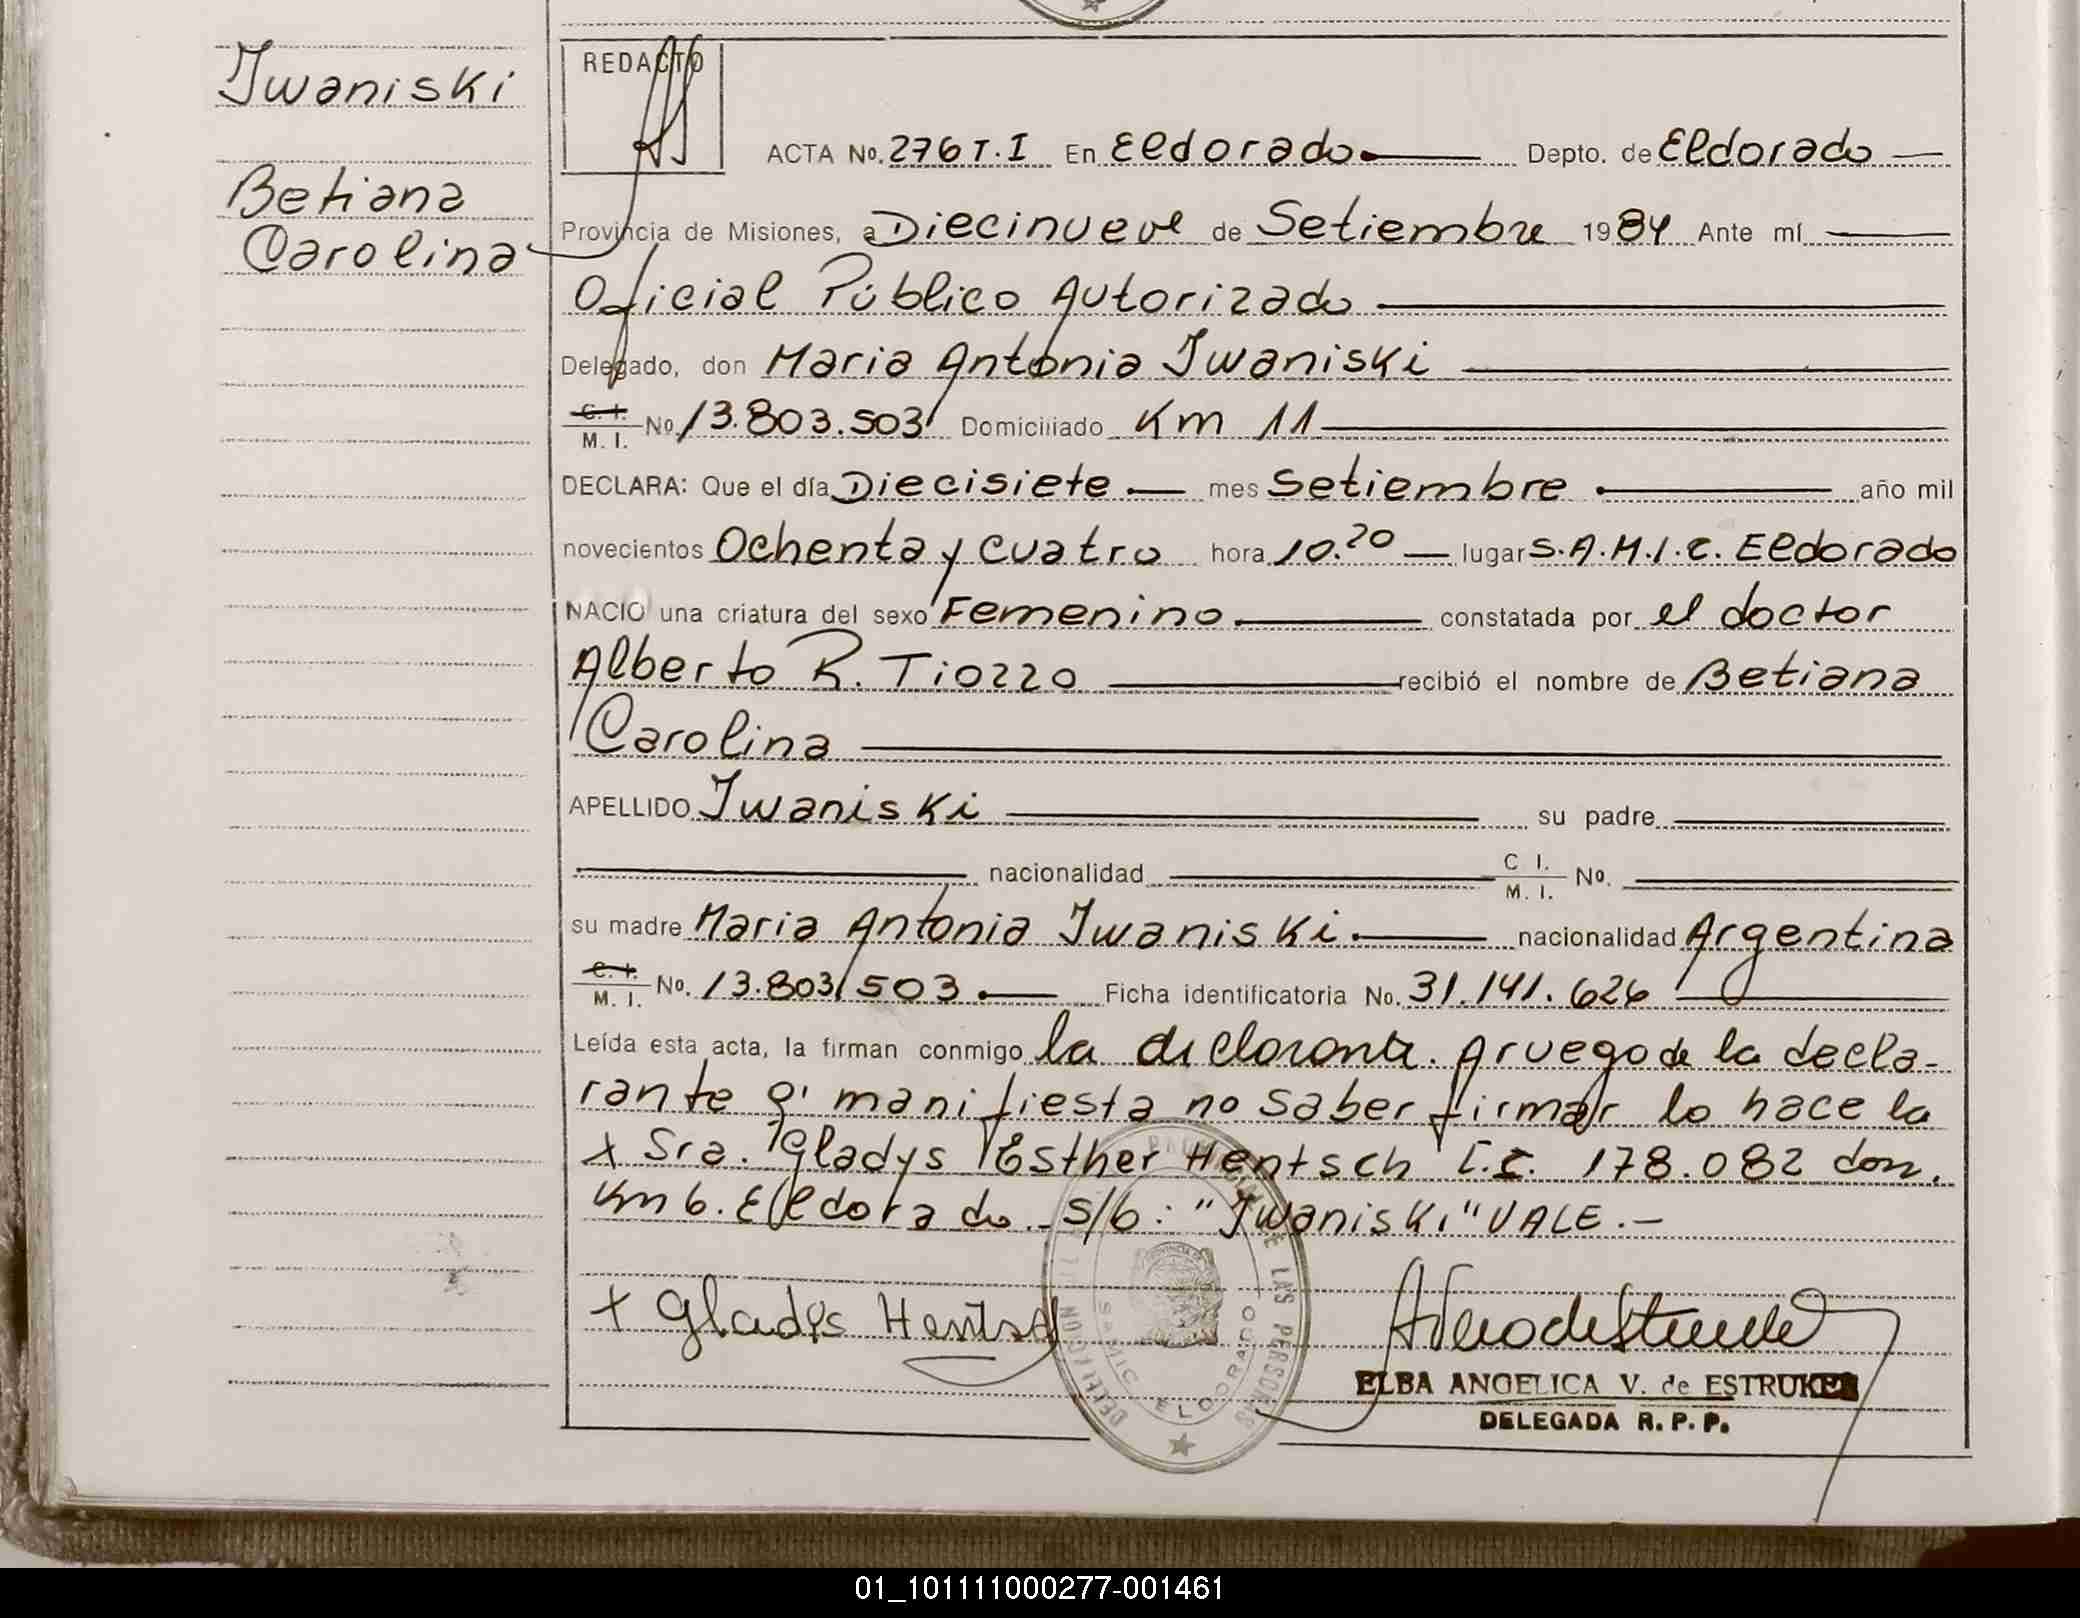 Iwaniski
Betiana
Carolina
REDACTO
ACTA No. 276 T. I En Eldorado Depto. de Eldorado
Provincia de Misiones, a Diecinueve de Setiembre 1984 Ante mí
Oficial Público Autorizado
Delegado, don Maria Antonia Iwaniski
C. I. M. I. No. 13.803.503 Domiciliado Km 11
DECLARA: Que el día Diecisiete mes Setiembre año mil
novecientos Ochenta y cuatro hora 10.20 lugar S.A.M.I.C. Eldorado
NACIO una criatura del sexo Femenino constatada por el doctor
Alberto R. Tiozzo recibió el nombre de Betiana
Carolina
APELLIDO Iwaniski su padre
nacionalidad C I. M. I. No.
su madre Maria Antonia Iwaniski nacionalidad Argentina
C. I. M. I. No. 13.803.503 Ficha identificatoria No. 31.141.626
Leída esta acta, la firman conmigo la declarante. A ruego de la decla-
rante q' manifiesta no saber firmar lo hace la
x Sra. Gladys Esther Hentsch C.I. 178.082 dom.
Km 6. Eldorado. S/b: "Iwaniski" VALE.-
x Gladys Hentsch
PROVINCIAL DE LAS PERSONAS
DELEGACION
SAMIC ELDORADO
ELBA ANGELICA V. de ESTRUKER
DELEGADA R. P. P.
01_101111000277-001461